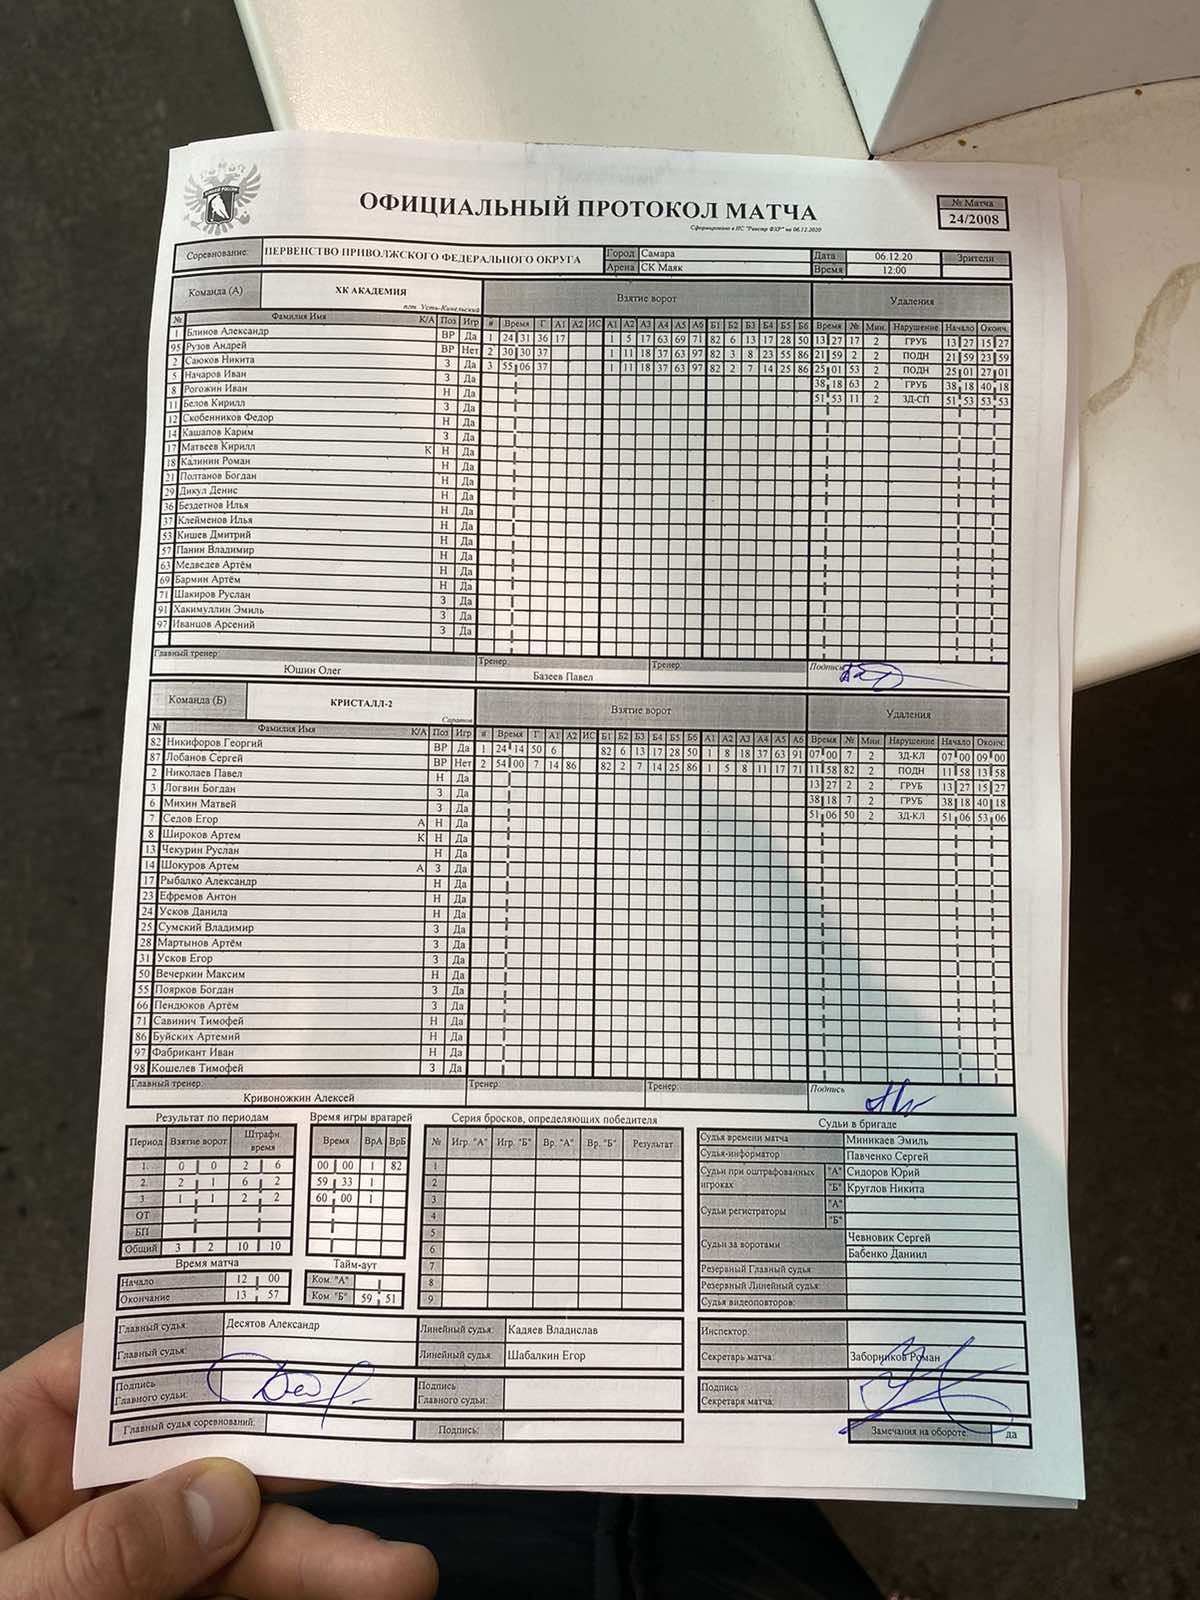 ОФИЦИАЛЬНЫЙ ПРОТОКОЛ МАТЧА
Сформировано в ИС "Реестр ФХР" на 06.12.2020
№ Матча
24/2008
Соревнование: ПЕРВЕНСТВО ПРИВОЛЖСКОГО ФЕДЕРАЛЬНОГО ОКРУГА Город Самара Дата 06.12.20 Зрители
Арена СК Маяк Время 12:00
Команда (А) ХК АКАДЕМИЯ Взятие ворот Удаления
пгт. Усть-Кинельский
№ Фамилия Имя К/А Поз Игр # Время Г А1 А2 ИС А1 А2 А3 А4 А5 А6 Б1 Б2 Б3 Б4 Б5 Б6 Время № Мин. Нарушение Начало Оконч.
1 Блинов Александр ВР Да 1 24 31 36 17 1 5 17 63 69 71 82 6 13 17 28 50 13 27 17 2 ГРУБ 13 27 15 27
95 Рузов Андрей ВР Нет 2 30 30 37 1 11 18 37 63 97 82 3 8 23 55 86 21 59 2 2 ПОДН 21 59 23 59
2 Саюков Никита З Да 3 55 06 37 1 11 18 37 63 97 82 2 7 14 25 86 25 01 53 2 ПОДН 25 01 27 01
5 Начаров Иван З Да 38 18 63 2 ГРУБ 38 18 40 18
8 Рогожин Иван Н Да 51 53 11 2 ЗД-СП 51 53 53 53
11 Белов Кирилл З Да
12 Скобенников Федор Н Да
14 Кашапов Карим З Да
17 Матвеев Кирилл К Н Да
18 Калинин Роман Н Да
21 Полтанов Богдан Н Да
29 Дикул Денис Н Да
36 Бездетнов Илья Н Да
37 Клейменов Илья Н Да
53 Кишев Дмитрий Н Да
57 Панин Владимир Н Да
63 Медведев Артём Н Да
69 Бармин Артём Н Да
71 Шакиров Руслан З Да
91 Хакимуллин Эмиль З Да
97 Иванцов Арсений З Да
Главный тренер: Юшин Олег Тренер: Базеев Павел Тренер: Подпись
Команда (Б) КРИСТАЛЛ-2 Взятие ворот Удаления
Саратов
№ Фамилия Имя К/А Поз Игр # Время Г А1 А2 ИС Б1 Б2 Б3 Б4 Б5 Б6 А1 А2 А3 А4 А5 А6 Время № Мин. Нарушение Начало Оконч.
82 Никифоров Георгий ВР Да 1 24 14 50 6 82 6 13 17 28 50 1 8 18 37 63 91 07 00 7 2 ЗД-КЛ 07 00 09 00
87 Лобанов Сергей ВР Нет 2 54 00 7 14 86 82 2 7 14 25 86 1 5 8 11 17 71 11 58 82 2 ПОДН 11 58 13 58
2 Николаев Павел Н Да 13 27 2 2 ГРУБ 13 27 15 27
3 Логвин Богдан З Да 38 18 7 2 ГРУБ 38 18 40 18
6 Михин Матвей З Да 51 06 50 2 ЗД-КЛ 51 06 53 06
7 Седов Егор А Н Да
8 Широков Артем К Н Да
13 Чекурин Руслан Н Да
14 Шокуров Артем А З Да
17 Рыбалко Александр Н Да
23 Ефремов Антон Н Да
24 Усков Данила Н Да
25 Сумский Владимир З Да
28 Мартынов Артём З Да
31 Усков Егор З Да
50 Вечеркин Максим Н Да
55 Поярков Богдан З Да
66 Пендюков Артём З Да
71 Савинич Тимофей Н Да
86 Буйских Артемий Н Да
97 Фабрикант Иван Н Да
98 Кошелев Тимофей З Да
Главный тренер: Кривоножкин Алексей Тренер: Тренер: Подпись
Результат по периодам Время игры вратарей Серия бросков, определяющих победителя Судьи в бригаде
Период Взятие ворот Штрафн время Время ВрА ВрБ № Игр. "А" Игр. "Б" Вр. "А" Вр. "Б" Результат
1. 0 0 2 6 00 00 1 82 1
2. 2 1 6 2 59 33 1 2
3 1 1 2 2 60 00 1 3
ОТ 4
БП 5
Общий 3 2 10 10 6
Время матча Тайм-аут 7
Начало 12 00 Ком. "А" 8
Окончание 13 57 Ком. "Б" 59 51 9
Судья времени матча Миникаев Эмиль
Судья-информатор Павченко Сергей
Судьи при оштрафованных игроках "А" Сидоров Юрий
"Б" Круглов Никита
Судьи регистраторы "А"
"Б"
Судьи за воротами Чевновик Сергей
Бабенко Даниил
Резервный Главный судья:
Резервный Линейный судья:
Судья видеоповторов:
Главный судья: Десятов Александр Линейный судья: Кадяев Владислав Инспектор:
Главный судья: Линейный судья: Шабалкин Егор Секретарь матча: Заборников Роман
Подпись Главного судьи: Подпись Главного судьи: Подпись Секретаря матча:
Главный судья соревнований: Подпись: Замечания на обороте: да